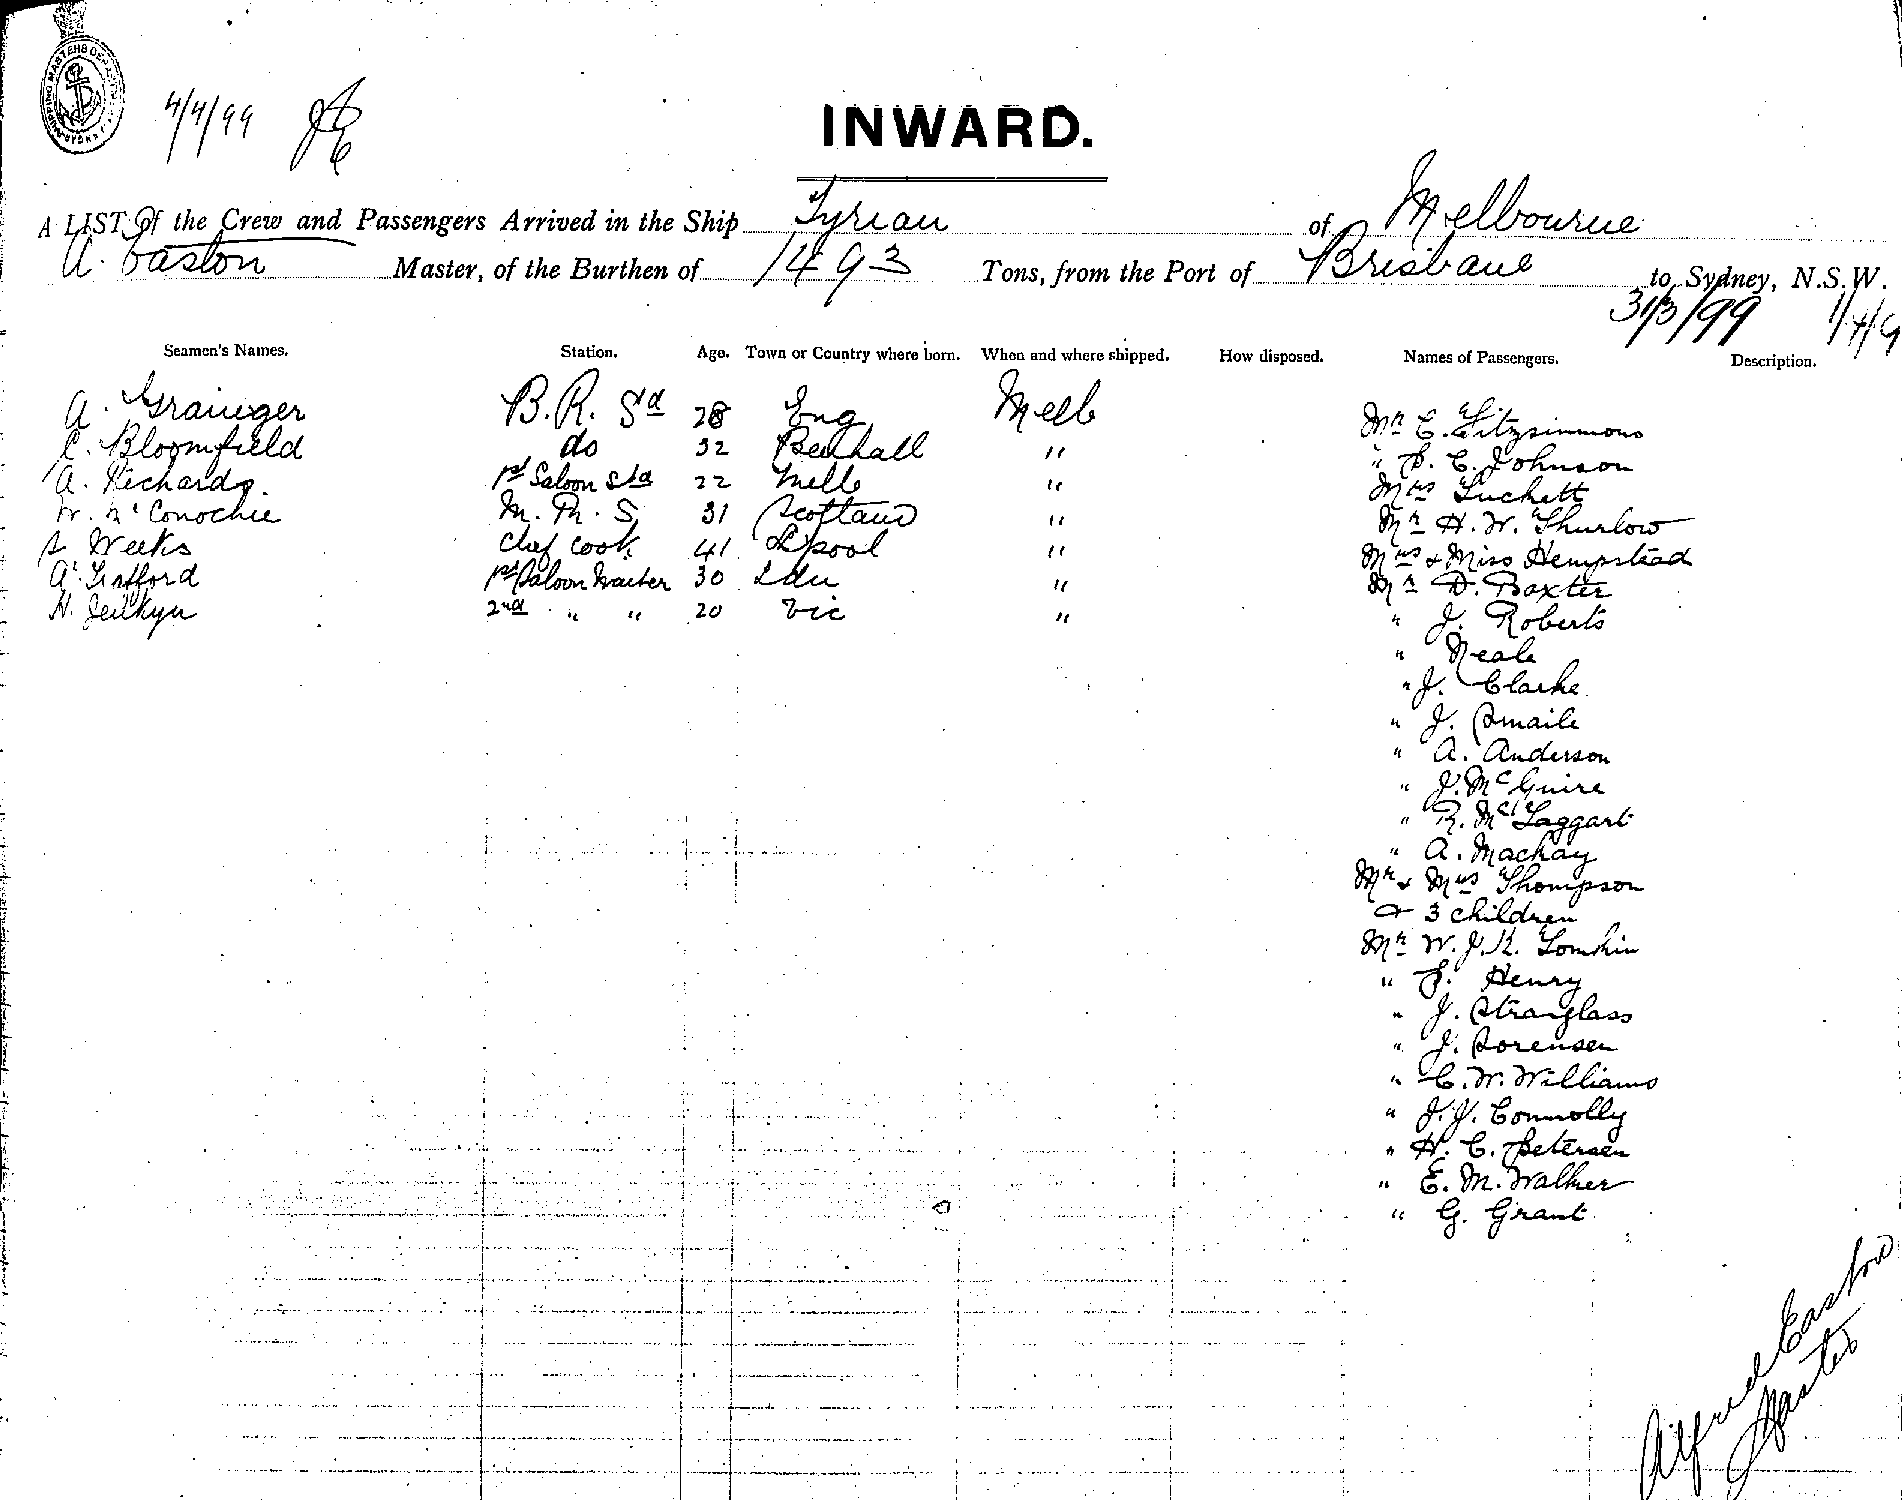 4/4/99
INWARD.
A LIST of the Crew and Passengers Arrived in the Ship Tyrian of Melbourne
A. Easton Master, of the Burthen of 1493 Tons, from the Port of Brisbane to Sydney, N.S.W.
31/3/99 1/4/9
Seamen's Names. Station. Age. Town or Country where born. When and where shipped. How disposed. Names of Passengers. Description.
A. Grainger B. R. Sd 28 Eng Melb
C. Bloomfield do 32 Benhall "
A. Richards. 1st Saloon Std 22 Melb "
W. McConochie M. Rm. S 31 Scotland "
S Weeks Chef Cook 41 L'pool "
A. Trafford 1st Saloon Waiter 30 Ldn "
H. Jeilkyn 2nd " " 20 Vic "
Mr C. Fitzsimmons
" S. C. Johnson
Mrs Luckett
Mr H. W. Thurlow
Mrs & Miss Hempstead
Mr D. Baxter
" J. Roberts
" Neale
" J. Clarke
" J. Smaile
" A. Anderson
" J. McGuire
" R. McTaggart
" A. Mackay
Mr & Mrs Thompson
& 3 children
Mr W. J. K. Tomkin
" S. Henry
" J. Stranglass
" J. Sorensen
" C. W. Williams
" J. J. Connolly
" H. C. Petersen
" E. M. Walker
" G. Grant
Alfred Easton
Master